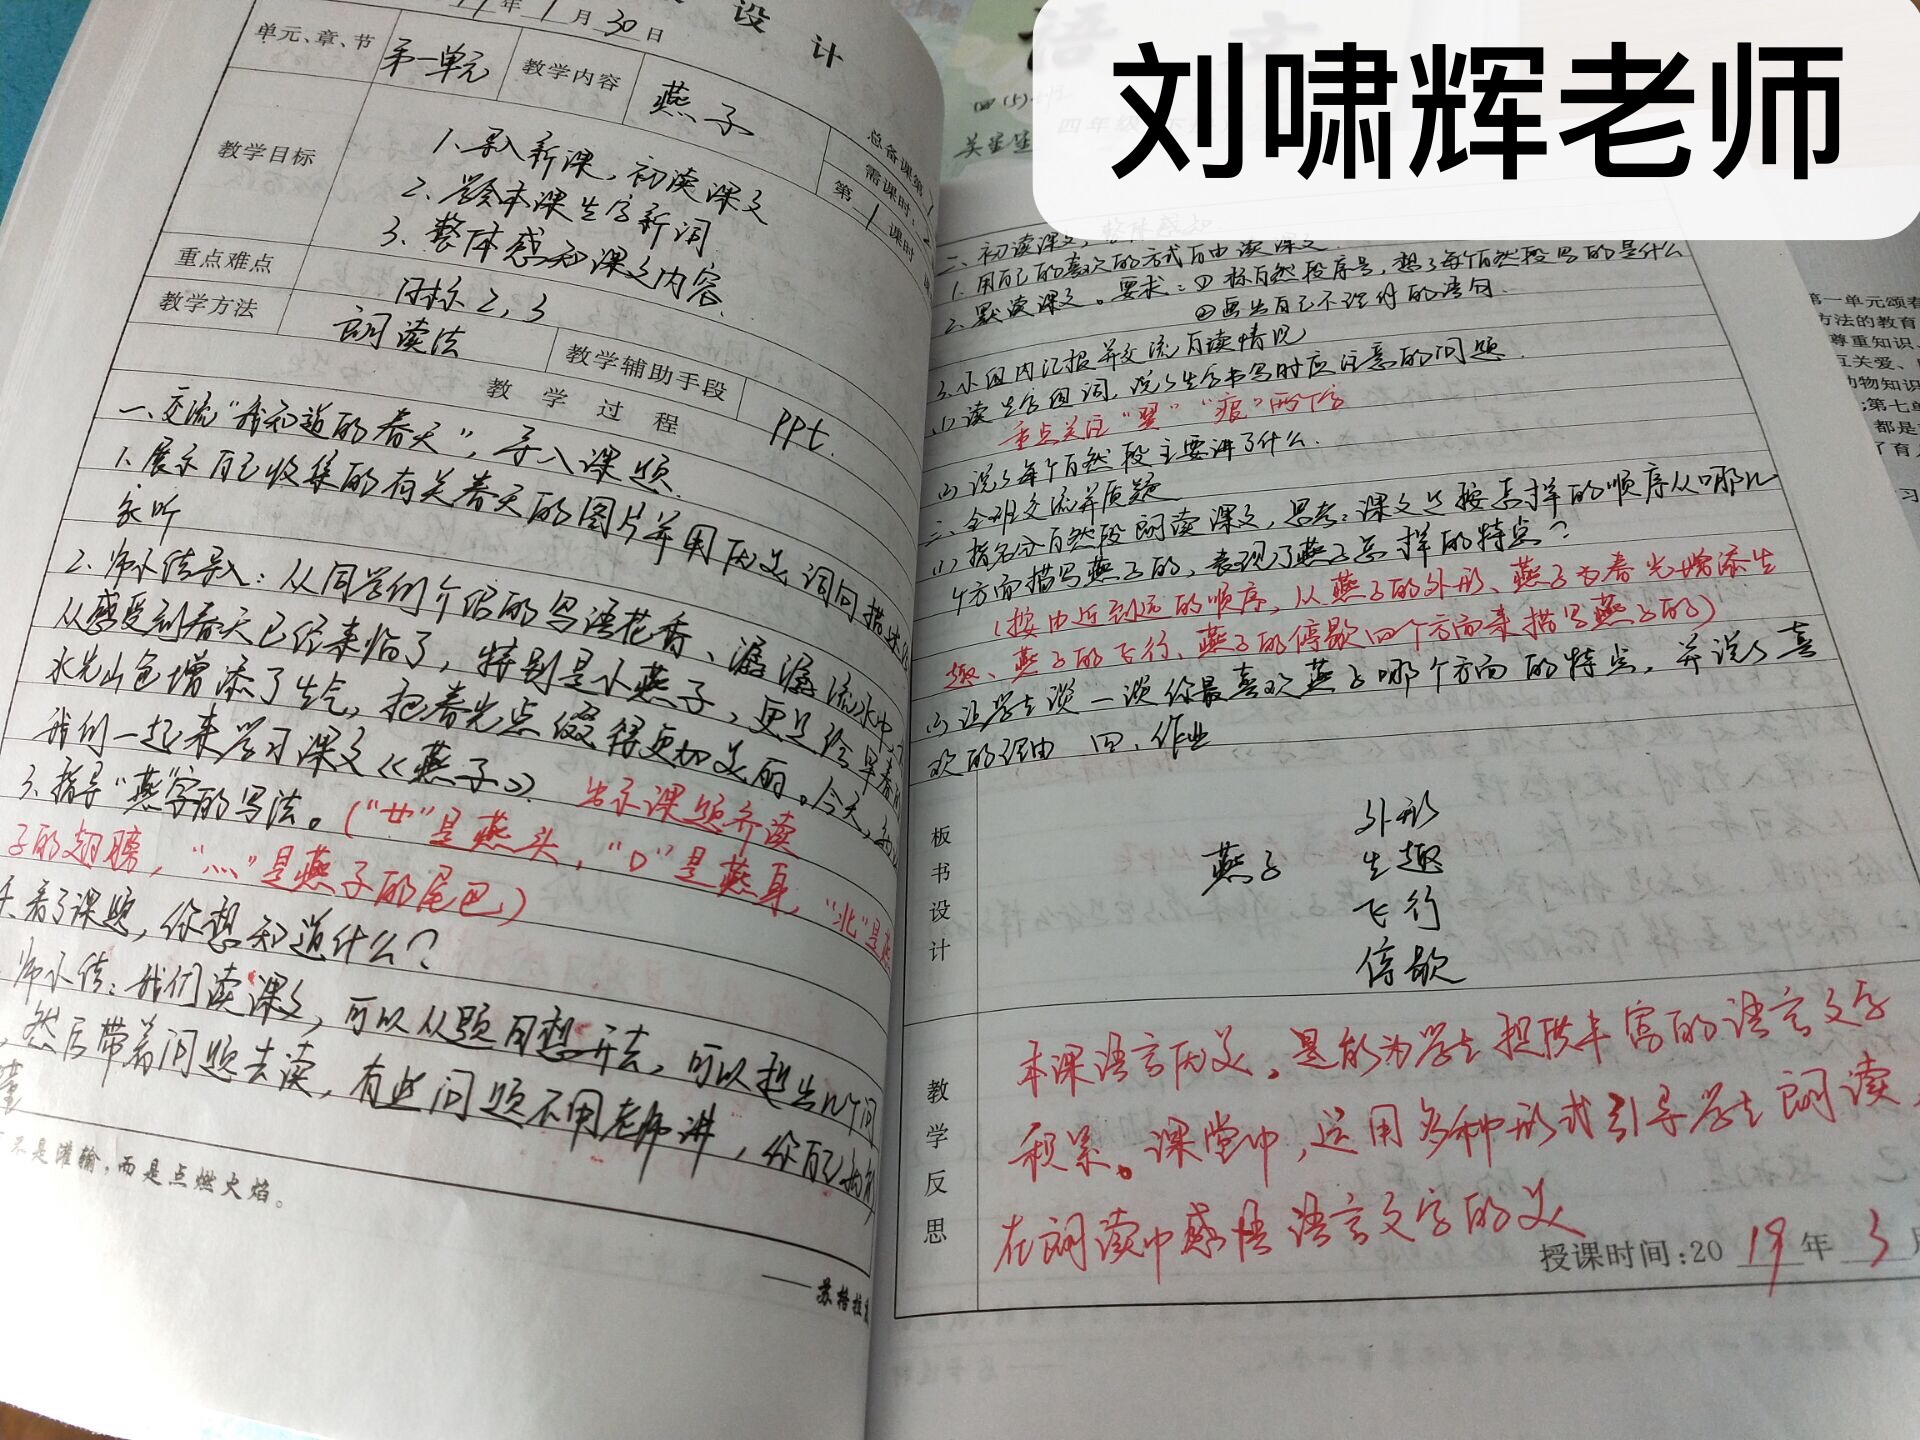 刘啸辉老师
设 计
19年1月30日
单元、章、节 第一单元 教学内容 燕子
总备课第1
需课时:2
第1课时
教学目标
1.导入新课，初读课文
2.学会本课生字新词
3.整体感知课文内容.
重点难点 目标2,3
教学方法 朗读法 教学辅助手段 PPt.
教 学 过 程
一、交流"我知道的春天"，导入课题.
1.展示自己收集的有关春天的图片并用优美词句描述给
家听
2.师小结导入:从同学们介绍的鸟语花香、潺潺流水中,
从感受到春天已经来临了，特别是小燕子，更是给早春的
水光山色增添了生气，把春光点缀得更加美丽。今天,
我们一起来学习课文《燕子》. 出示课题齐读
3.指导"燕"字的写法。("廿"是燕头，"口"是燕身，"北"是燕
子的翅膀，"灬"是燕子的尾巴)
看了课题，你想知道什么？
师小结:我们读课文，可以从题目想开去，可以提出几个问
，然后带着问题去读，有些问题不用老师讲，你自己
懂
不是灌输，而是点燃火焰。
——苏格拉
二、初读课文，整体感知
1.用自己的喜欢的方式自由读课文.
2.默读课文。要求:①标自然段序号，想想每个自然段写的是什么
②画出自己不理解的语句.
3.小组内汇报并交流自读情况
(1)读生字组词，说说生字书写时应注意的问题.
重点关注"翼""痕"两个字
(2)说说每个自然段主要讲了什么.
三、全班交流并质疑
(1)指名分自然段朗读课文，思考:课文是按怎样的顺序从哪几
个方面描写燕子的，表现了燕子怎样的特点？
(按由近到远的顺序，从燕子的外形、燕子为春光增添生
趣、燕子的飞行、燕子的停歇四个方面来描写燕子的)
(2)让学生谈一谈你最喜欢燕子哪个方面的特点，并说说喜
欢的理由 四、作业
板书设计
外形
燕子 生趣
飞行
停歇
教学反思
本课语言优美，是能为学生提供丰富的语言文字
积累。课堂中，运用多种形式引导学生朗读，
在朗读中感悟语言文字的美
授课时间:2019年3月
第一单元颂春
方法的教育
尊重知识、
互关爱、
动物知识
;第七单
都是
了育人
习